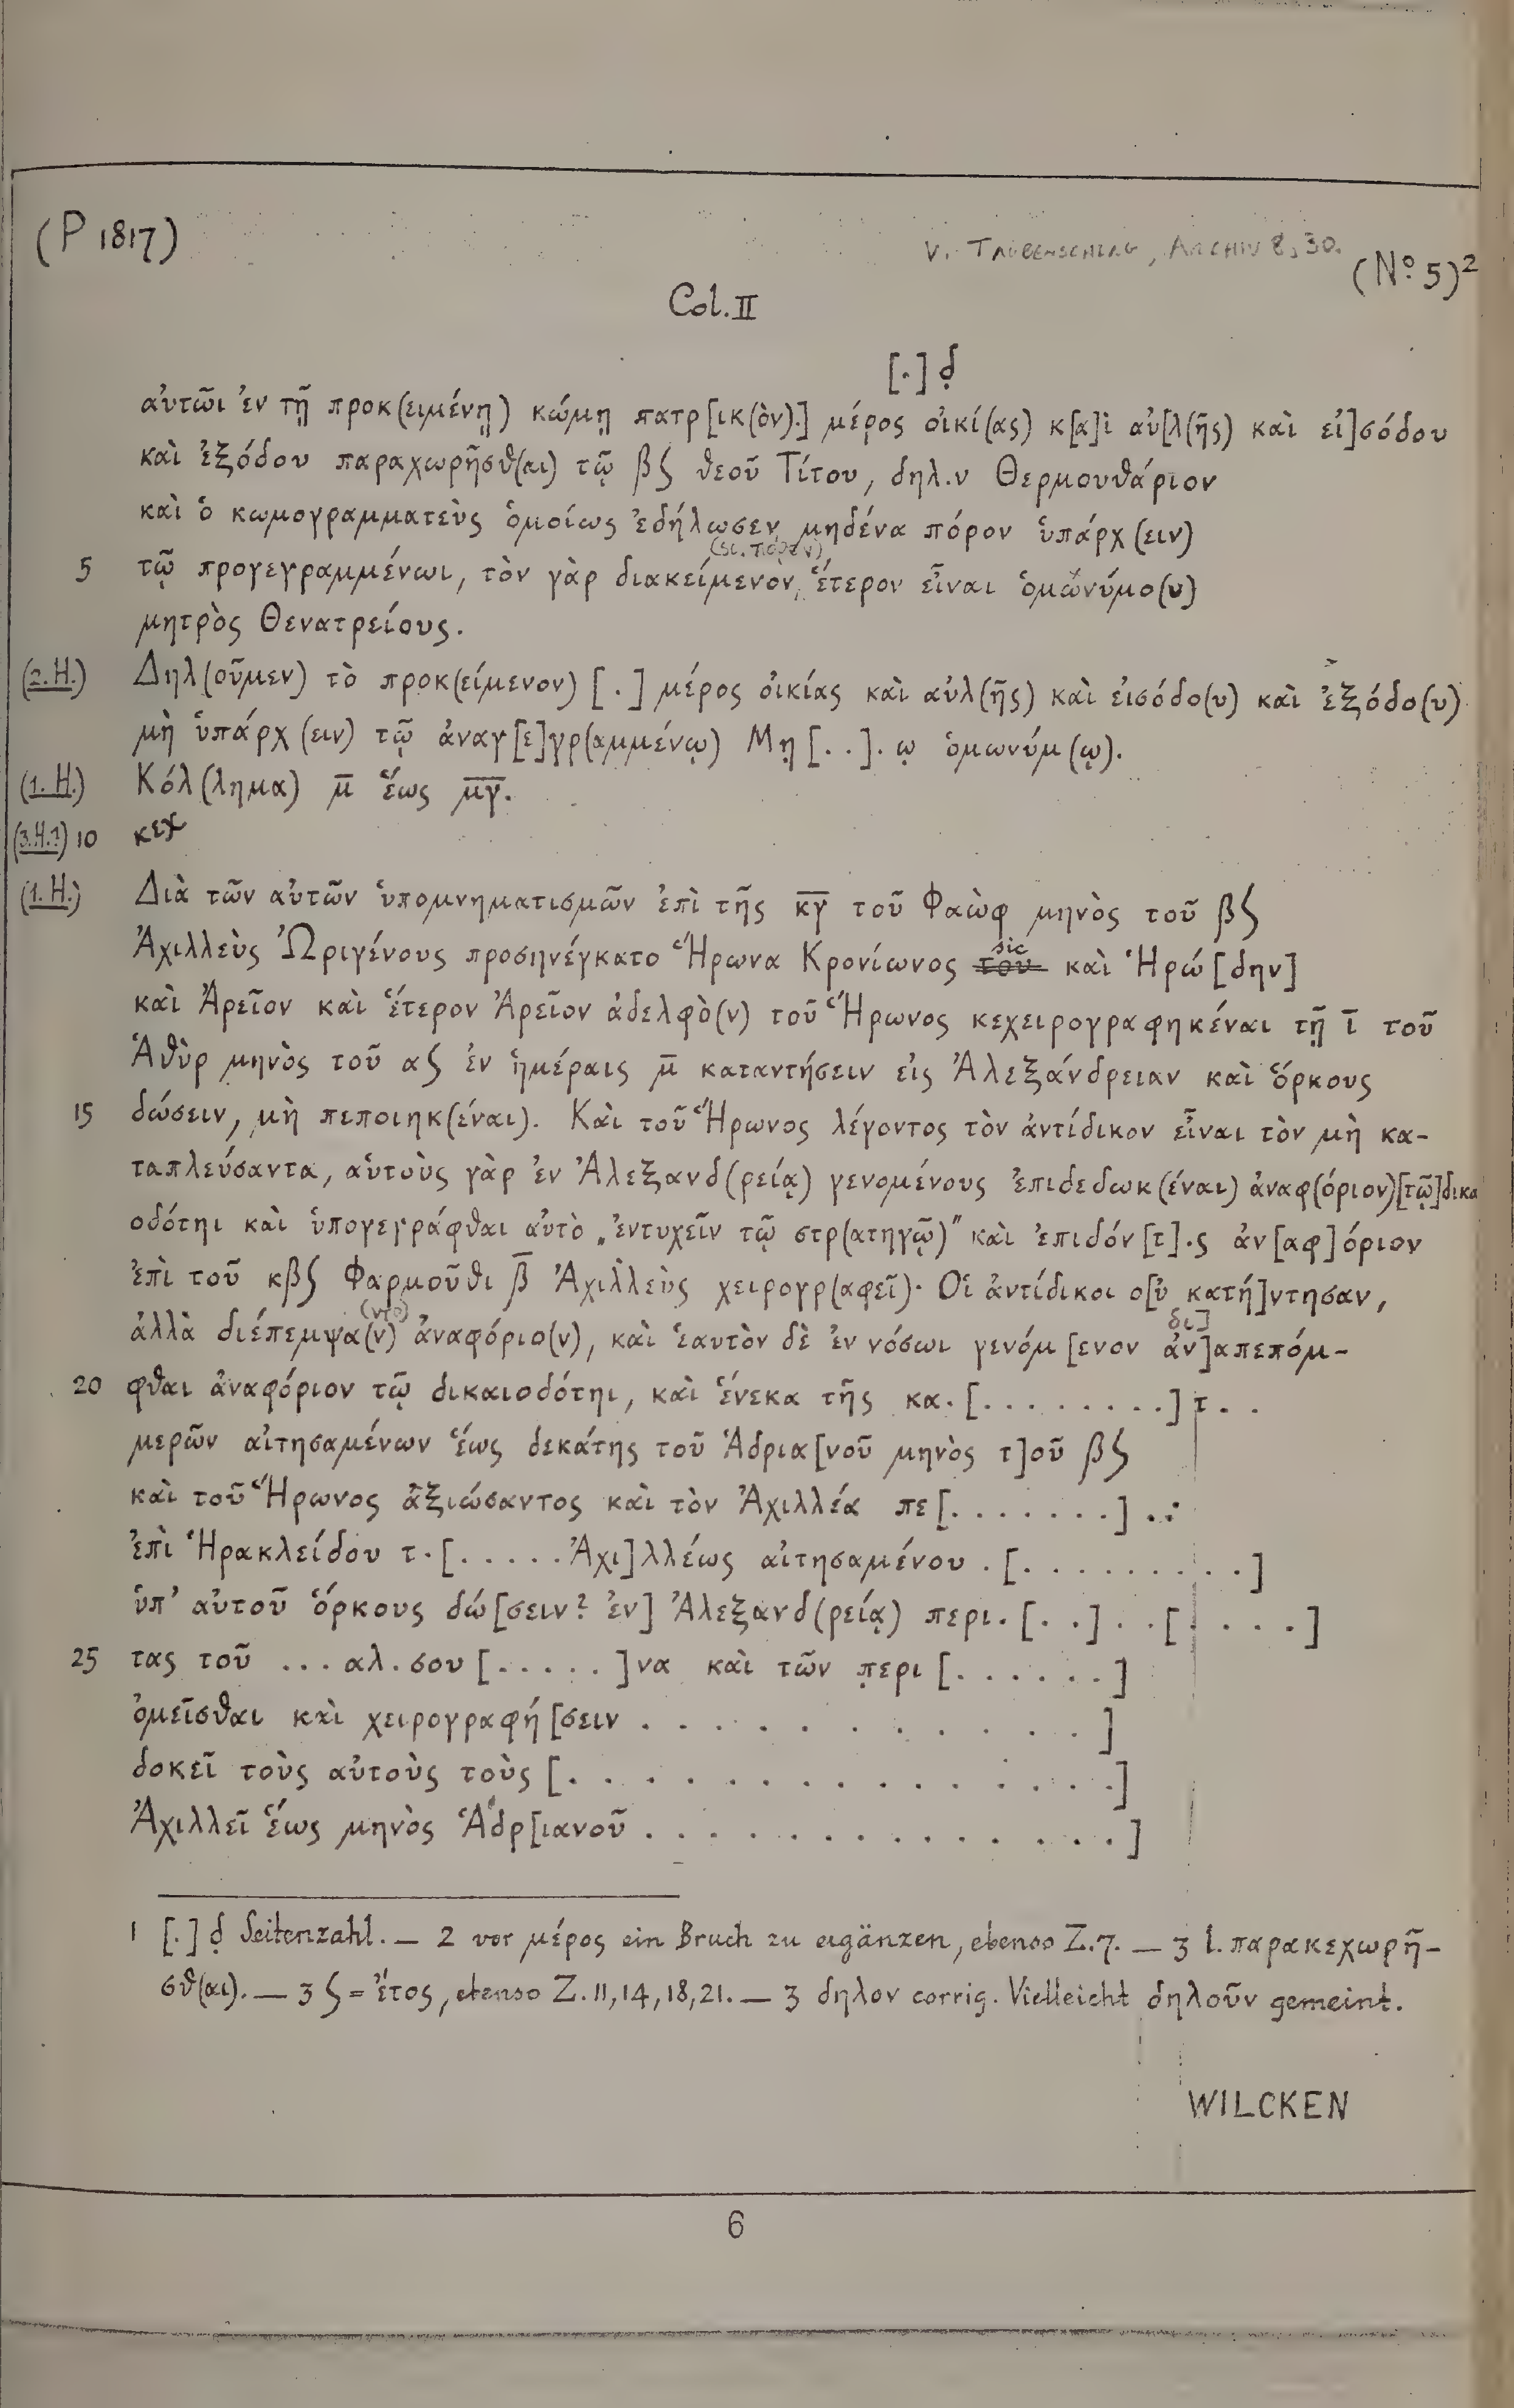 (P 1817)
V. TAUBENSCHLAG, ARCHIV 8, 30.
(No. 5)²
Col. II
[.] δ̣
αὐτῶι ἐν τῇ προκ(ειμένῃ) κώμῃ πατρ[ικ(ὸν).] μέρος οἰκί(ας) κ[α]ὶ αὐ[λ(ῆς) καὶ εἰ]σόδου
καὶ ἐξόδου παραχωρῆσθ(αι) τῷ βϛ θεοῦ Τίτου, δηλ.ν Θερμουθάριον
καὶ ὁ κωμογραμματεὺς ὁμοίως ἐδήλωσεν μηδένα πόρον ὑπάρχ(ειν)
(sc. πόρον)
5 τῷ προγεγραμμένωι, τὸν γὰρ διακείμενον, ἕτερον εἶναι ὁμωνύμο(υ)
μητρὸς Θενατρείους.
(2. H.) Δηλ(οῦμεν) τὸ προκ(είμενον) [.] μέρος οἰκίας καὶ αὐλ(ῆς) καὶ εἰσόδο(υ) καὶ ἐξόδο(υ)
μὴ ὑπάρχ(ειν) τῷ ἀναγ[ε]γρ(αμμένῳ) Μη̣[..]. ῳ ὁμωνύμ(ῳ).
(1. H.) Κόλ(λημα) μ̅ ἕως μ̅γ̅.
(3. H.?) 10 κεχ
(1. H.) Διὰ τῶν αὐτῶν ὑπομνηματισμῶν ἐπὶ τῆς κ̅γ̅ τοῦ Φαὼφ μηνὸς τοῦ βϛ
Ἀχιλλεὺς Ὠριγένους προσηνέγκατο Ἥρωνα Κρονίωνος sic καὶ Ἡρώ[δην]
καὶ Ἀρεῖον καὶ ἕτερον Ἀρεῖον ἀδελφὸ(ν) τοῦ Ἥρωνος κεχειρογραφηκέναι τῇ ι̅ τοῦ
Ἁθὺρ μηνὸς τοῦ αϛ ἐν ἡμέραις μ̅ καταντήσειν εἰς Ἀλεξάνδρειαν καὶ ὅρκους
15 δώσειν, μὴ πεποιηκ(έναι). Καὶ τοῦ Ἥρωνος λέγοντος τὸν ἀντίδικον εἶναι τὸν μὴ κα-
ταπλεύσαντα, αὑτοὺς γὰρ ἐν Ἀλεξανδ(ρείᾳ) γενομένους ἐπιδεδωκ(έναι) ἀναφ(όριον) [τῷ] δικα
οδότηι καὶ ὑπογεγράφθαι αὐτὸ „ἐντυχεῖν τῷ στρ(ατηγῷ)" καὶ ἐπιδόν[τ].ς ἀν[αφ]όριον
ἐπὶ τοῦ κβϛ Φαρμοῦθι β̅ Ἀχιλλεὺς χειρογρ(αφεῖ)· Οἱ ἀντίδικοι ο[ὐ κατή]ντησαν,
ἀλλὰ διέπεμψα(ν) ἀναφόριο(ν), καὶ ἑαυτὸν δὲ ἐν νόσωι γενόμ[ενον ἀν]απεπόμ-
δι]
20 φθαι ἀναφόριον τῷ δικαιοδότηι, καὶ ἕνεκα τῆς κα.[........]τ..
μερῶν αἰτησαμένων ἕως δεκάτης τοῦ Ἁδρια[νοῦ μηνὸς τ]οῦ βϛ
καὶ τοῦ Ἥρωνος ἀξιώσαντος καὶ τὸν Ἀχιλλέα πε[.......]..
ἐπὶ Ἡρακλείδου τ.[.....Ἀχι]λλέως αἰτησαμένου .[.........]
ὑπ' αὐτοῦ ὅρκους δώ[σειν? ἐν] Ἀλεξανδ(ρείᾳ) περι.[..]..[....]
25 τας τοῦ ...αλ.σου[.....]να καὶ τῶν περι[......]
ὀμεῖσθαι καὶ χειρογραφή[σειν ............]
δοκεῖ τοὺς αὐτοὺς τοὺς [...............]
Ἀχιλλεῖ ἕως μηνὸς Ἁδρ[ιανοῦ .............]
1 [.] δ̣ Seitenzahl. — 2 vor μέρος ein Bruch zu ergänzen, ebenso Z. 7. — 3 l. παρακεχωρῆ-
σθ(αι). — 3 ϛ = ἔτος, ebenso Z. 11, 14, 18, 21. — 3 δηλον corrig. Vielleicht δηλοῦν gemeint.
WILCKEN
6